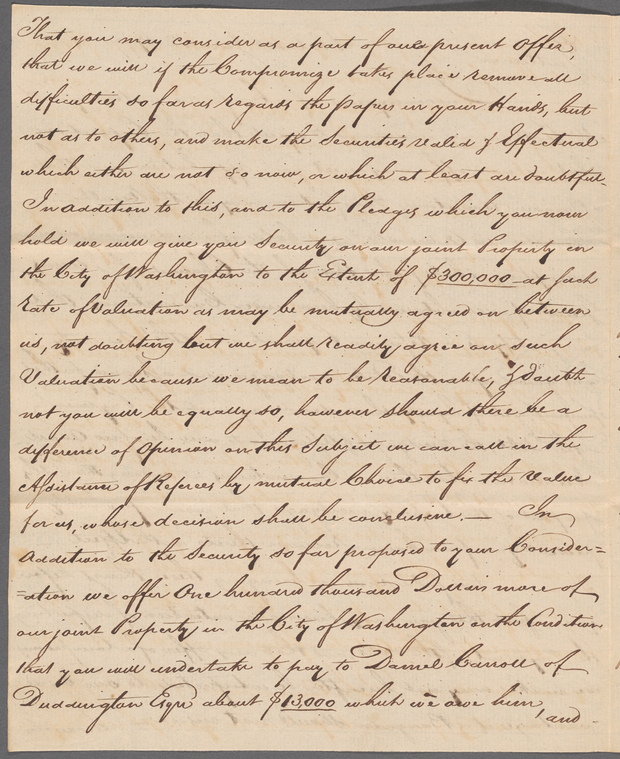 That you may consider as a part of our present Offer,
that we will if the Compromize takes place remove all
difficulties so far as regards the papers in your Hands, but
not as to others, and make the Securities valid & Effectual
which either are not so now, or which at least are doubtful.
In addition to this, and to the Pledges which you now
hold we will give you Security on our joint Property in
the City of Washington to the Extent of $300,000 at such
rate of Valuation as may be mutually agreed on between
us, not doubting but we shall readily agree on such
Valuation because we mean to be reasonable, & doubt
not you will be equally so, however should there be a
difference of opinion on this Subject we can call in the
Assistance of Referees by mutual Choice to fix the Value
for us, whose decision shall be conclusive. — In
addition to the Security so far proposed to your Consider=
=ation we offer One hundred thousand Dollars more of
our joint Property in the City of Washington on the Condition
that you will undertake to pay to Daniel Carroll of
Duddington Esqr about $13,000 which we owe him,
and